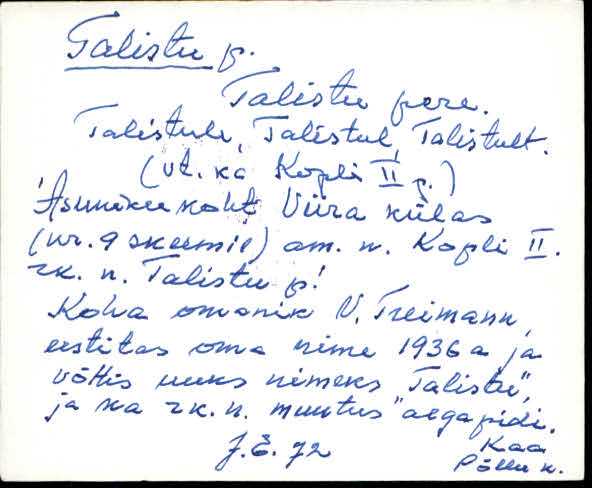 Talistu p.
Talistu pere.
Talistule, Talistul, Talistult.
(vt. ka Kopli II p.)
Asuniku koht Viira külas
(nr. 9 skeemil) am. n. Kopli II.
rk. n. Talistu p!
Koha omanik V. Treimann,
eestitas oma nime 1936 a ja
võttis uueks nimeks "Talistu",
ja ka rk. n. muutus aegapidi.
J. E. 72
Kaa
Põllu k.